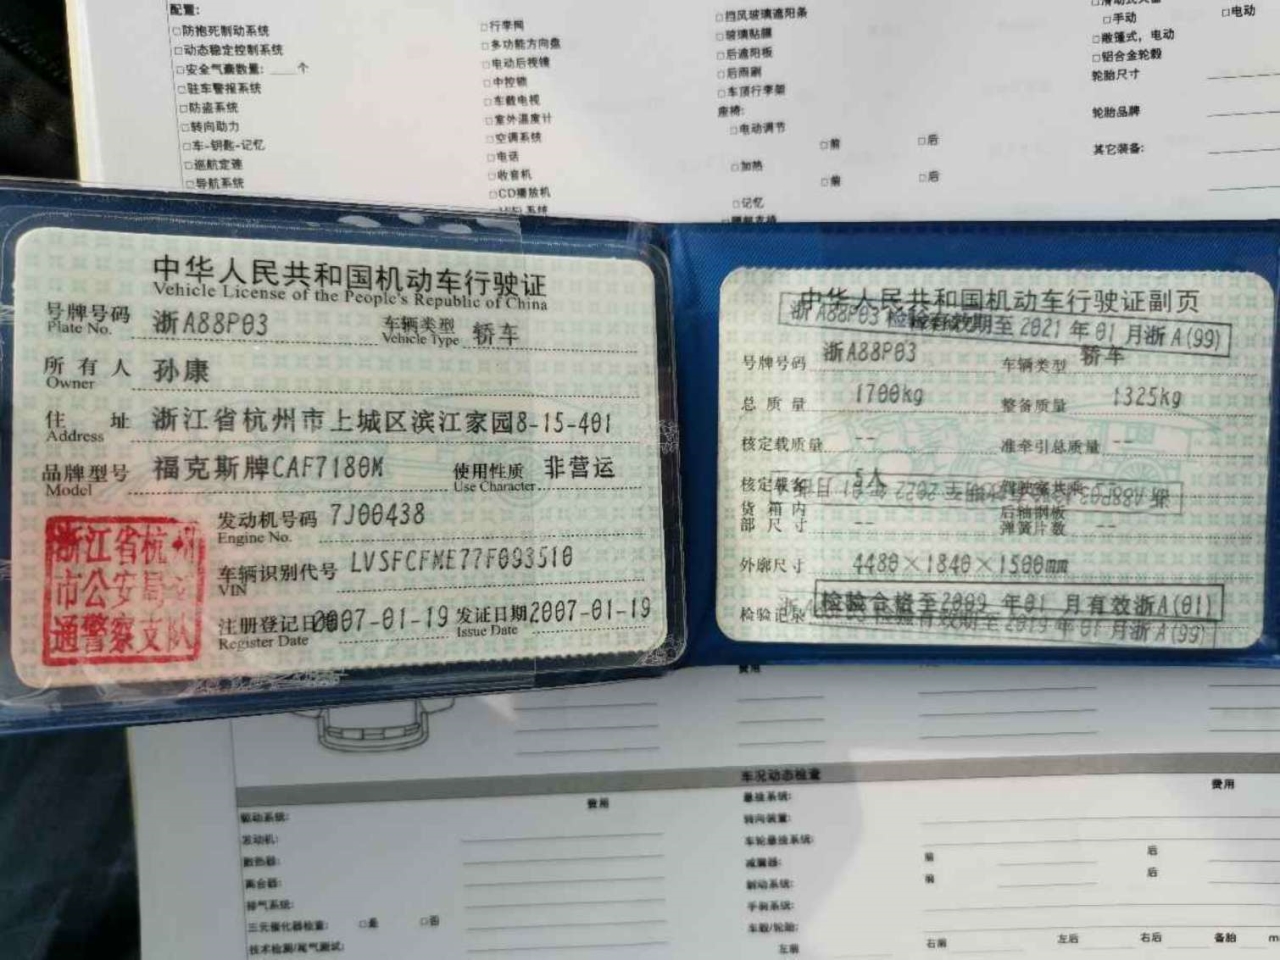 配置:
□防抱死制动系统
□动态稳定控制系统
□安全气囊数量: ___个
□驻车警报系统
□防盗系统
□转向助力
□车-钥匙-记忆
□巡航定速
□导航系统
□行李网
□多功能方向盘
□电动后视镜
□中控锁
□车载电视
□室外温度计
□空调系统
□电话
□收音机
□CD播放机
□挡风玻璃遮阳条
□玻璃贴膜
□后遮阳板
□后雨刷
□车顶行李架
座椅:
□电动调节
□前 □后
□加热
□前 □后
□记忆
□手动 □电动
□敞篷式，电动
□铝合金轮毂
轮胎尺寸
轮胎品牌
其它装备:
中华人民共和国机动车行驶证
Vehicle License of the People's Republic of China
号牌号码 浙A88P03 车辆类型 轿车
Plate No. Vehicle Type
所有人 孙康
Owner
住址 浙江省杭州市上城区滨江家园8-15-401
Address
品牌型号 福克斯牌CAF7180M 使用性质 非营运
Model Use Character
发动机号码 7J00438
Engine No.
车辆识别代号 LVSFCFME77F093510
VIN
注册登记日期 2007-01-19 发证日期 2007-01-19
Register Date Issue Date
浙江省杭州
市公安局交
通警察支队
中华人民共和国机动车行驶证副页
浙A88P03 检验有效期至2021年01月浙A(99)
号牌号码 浙A88P03 车辆类型 轿车
总质量 1700kg 整备质量 1325kg
核定载质量 -- 准牵引总质量 --
核定载客 5人 驾驶室共乘 --
货箱内部尺寸 -- 后轴钢板弹簧片数 --
外廓尺寸 4480×1840×1500mm
检验记录 检验合格至2009年01月有效浙A(01)
检验有效期至2019年01月浙A(99)
费用
车况动态检查
费用 费用
驱动系统:
发动机:
散热器:
离合器:
排气系统:
三元催化器检查: □是 □否
技术检测/尾气测试:
悬挂系统:
转向装置:
车轮悬挂系统:
减震器: 前 后
制动系统: 前 后
手刹系统:
车毂/轮胎:
左前 右前 左后 右后 备胎 m